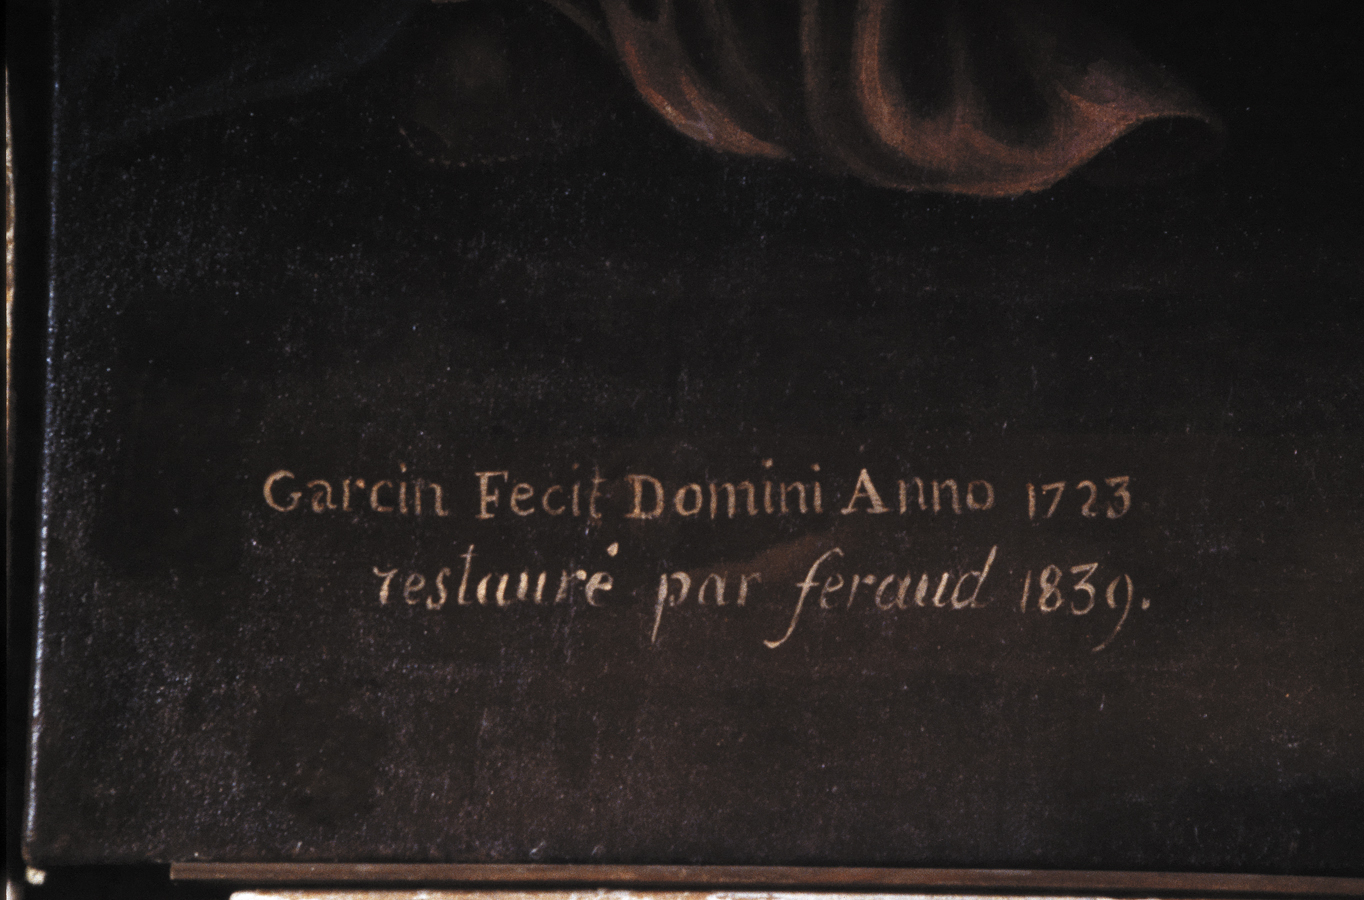 Garcin Fecit Domini Anno 1723
restauré par feraud 1839.